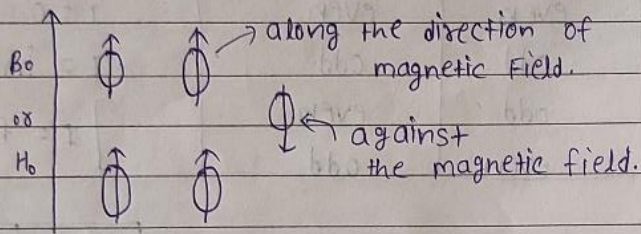 along the direction of
Bo
magnetic Field.
or
against
Ho
the magnetic field.